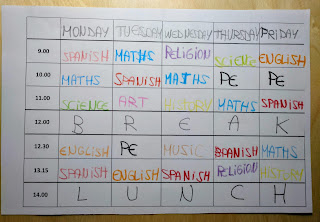 MONDAY TUESDAY WEDNESDAY THURSDAY FRIDAY
9.00 SPANISH MATHS RELIGION SCIENCE ENGLISH
10.00 MATHS SPANISH MATHS PE PE
11.00 SCIENCE ART HISTORY MATHS SPANISH
12.00 B R E A K
12.30 ENGLISH PE MUSIC SPANISH MATHS
13.15 SPANISH ENGLISH SPANISH RELIGION HISTORY
14.00 L U N C H